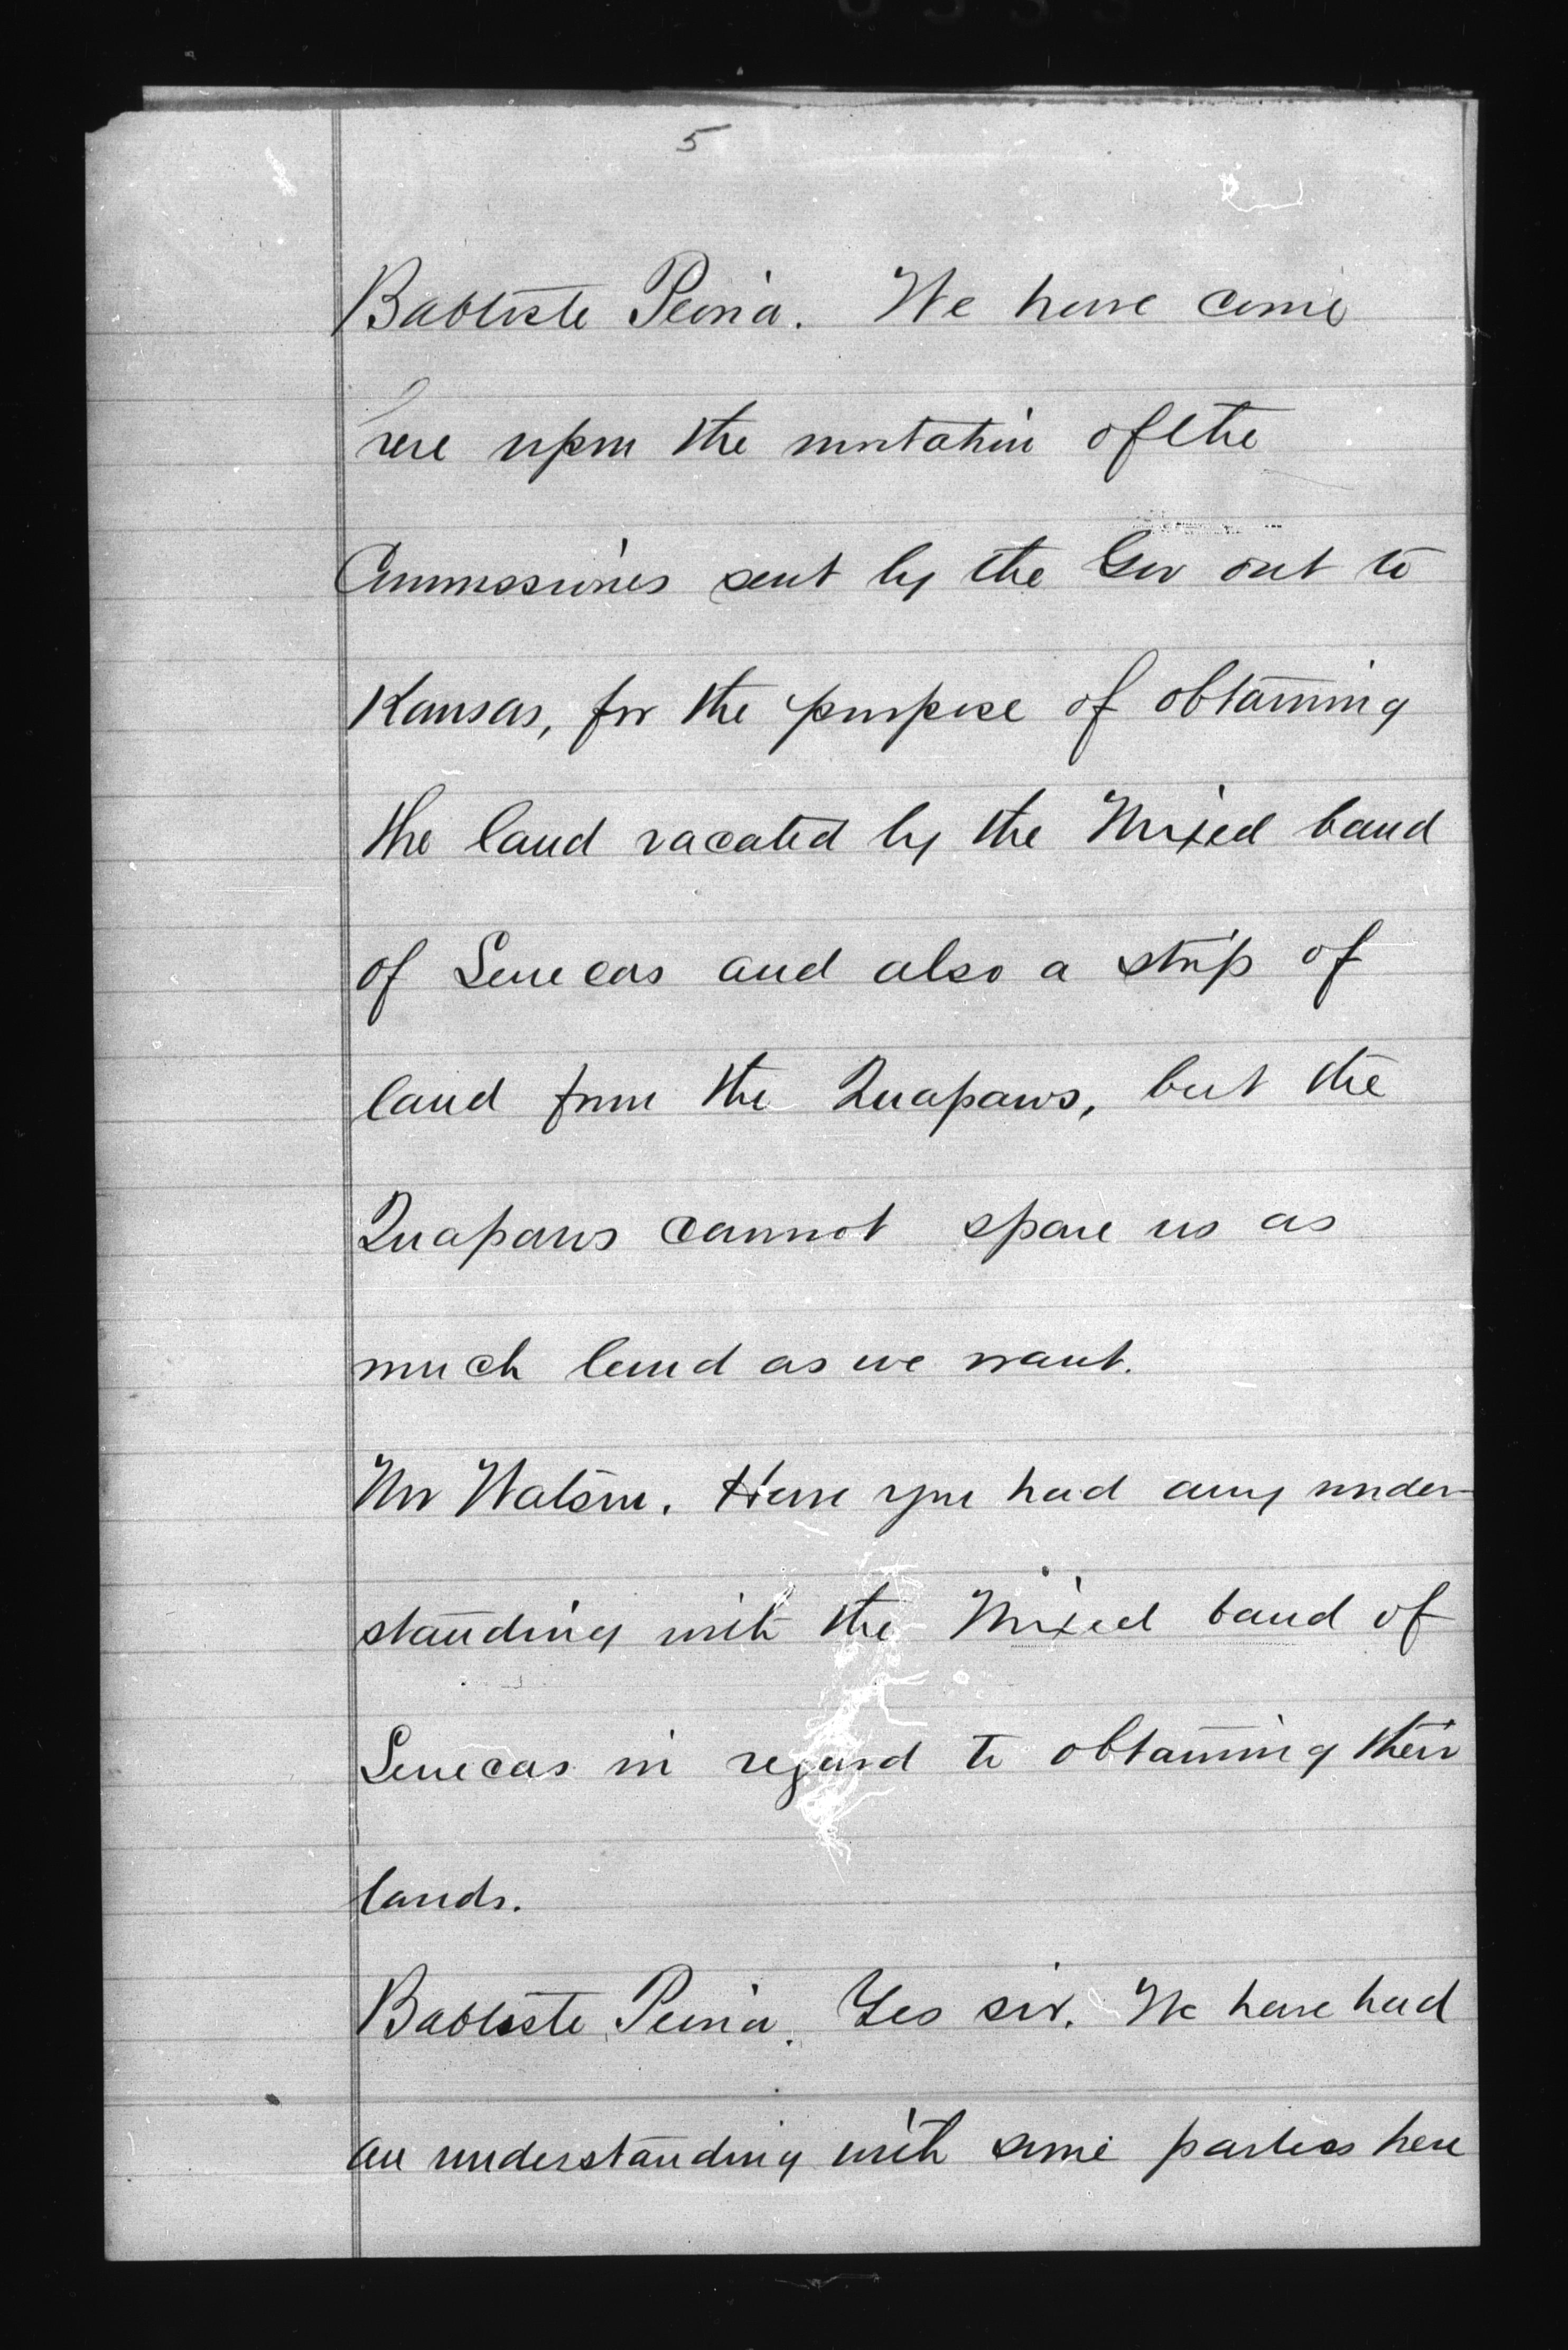 5
Babtiste Peoria. We have come
here upon the invitation of the
Commissioners sent by the Gov out to
Kansas, for the purpose of obtaining
the land vacated by the Mixed band
of Senecas and also a strip of
land from the Quapaws, but the
Quapaws cannot spare us as
much land as we want.
Mr Watson. Have you had any under-
standing with the Mixed band of
Senecas in regard to obtaining their
lands.
Babtiste Peoria. Yes sir. We have had
an understanding with some parties here